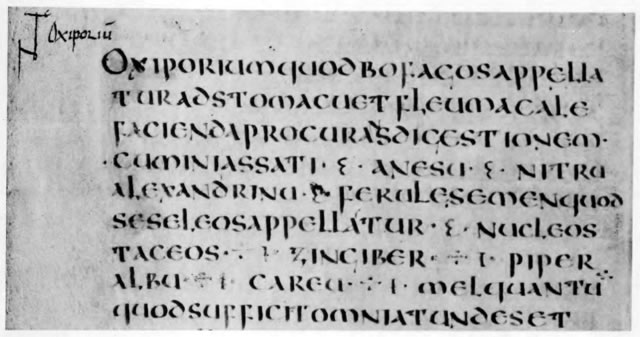 Oxiporiū
OXIPORIUMQUODBOFAGOSAPPELLA
TURADSTOMACUETFLEUMACALE
FACIENDAPROCURASDIGESTIONEM·
·CUMINIASSATI· ·ANESU· ·NITRU
ALEXANDRINU· FERULESEMENQUOD
SESELEOSAPPELLATUR· ·NUCLEOS
TACEOS·÷I ZINCIBER·÷I·PIPER
ALBU÷I CAREU·÷I MELQUANTU
QUODSUFFICITOMNIATUNDESET